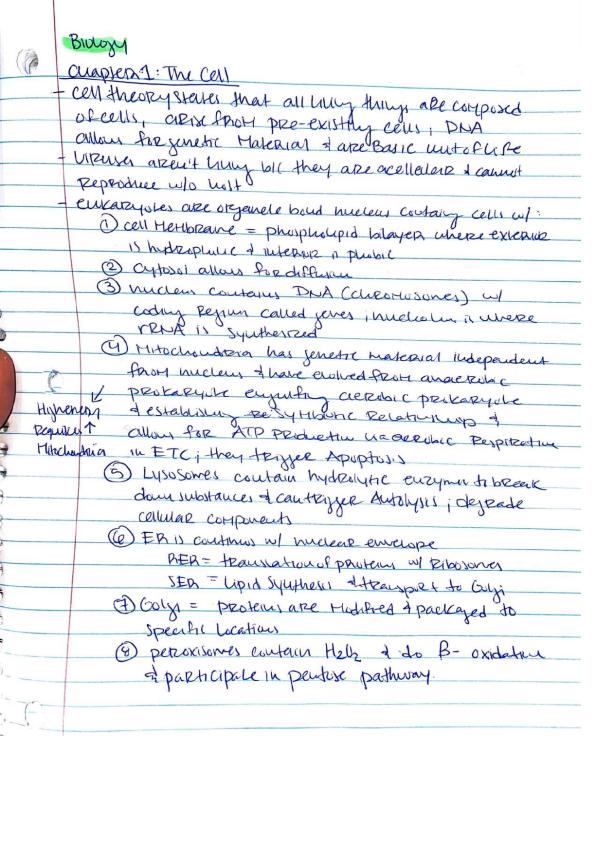 Biology
Chapter 1: The Cell
- Cell theory states that all living things are composed
of cells, arise from pre-existing cells, DNA
allows for genetic material & are basic unit of life
- Viruses aren't living b/c they are acellular & cannot
reproduce w/o host
- eukaryotes are organele bound nucleus containg cells w/:
① cell membrane = phospholipid bilayer where exterior
is hydrophilic & interior is phobic
② cytosol allows for diffusion
③ nucleus contains DNA (chromosomes) w/
coding region called genes, nucleolus is where
rRNA is synthesized
④ Mitochondria has genetic material independent
from nucleus & have evolved from anaerobic
prokaryote engulfing aerobic prokaryote
& establishing symbiotic relationship &
allows for ATP production via aerobic respiration
in ETC; they trigger Apoptosis
High energy
requires ↑
Mitochondria
⑤ Lysosomes contain hydrolytic enzymes to break
down substances & can trigger Autolysis; degrade
cellular components
⑥ ER is continuos w/ nuclear envelope
RER = translation of proteins w/ Ribosomes
SER = Lipid synthesis & transport to Golgi
⑦ Golgi = proteins are modified & packaged to
specific locations
⑧ peroxisomes contain H2O2 & do β- oxidation
& participate in pentose pathway.